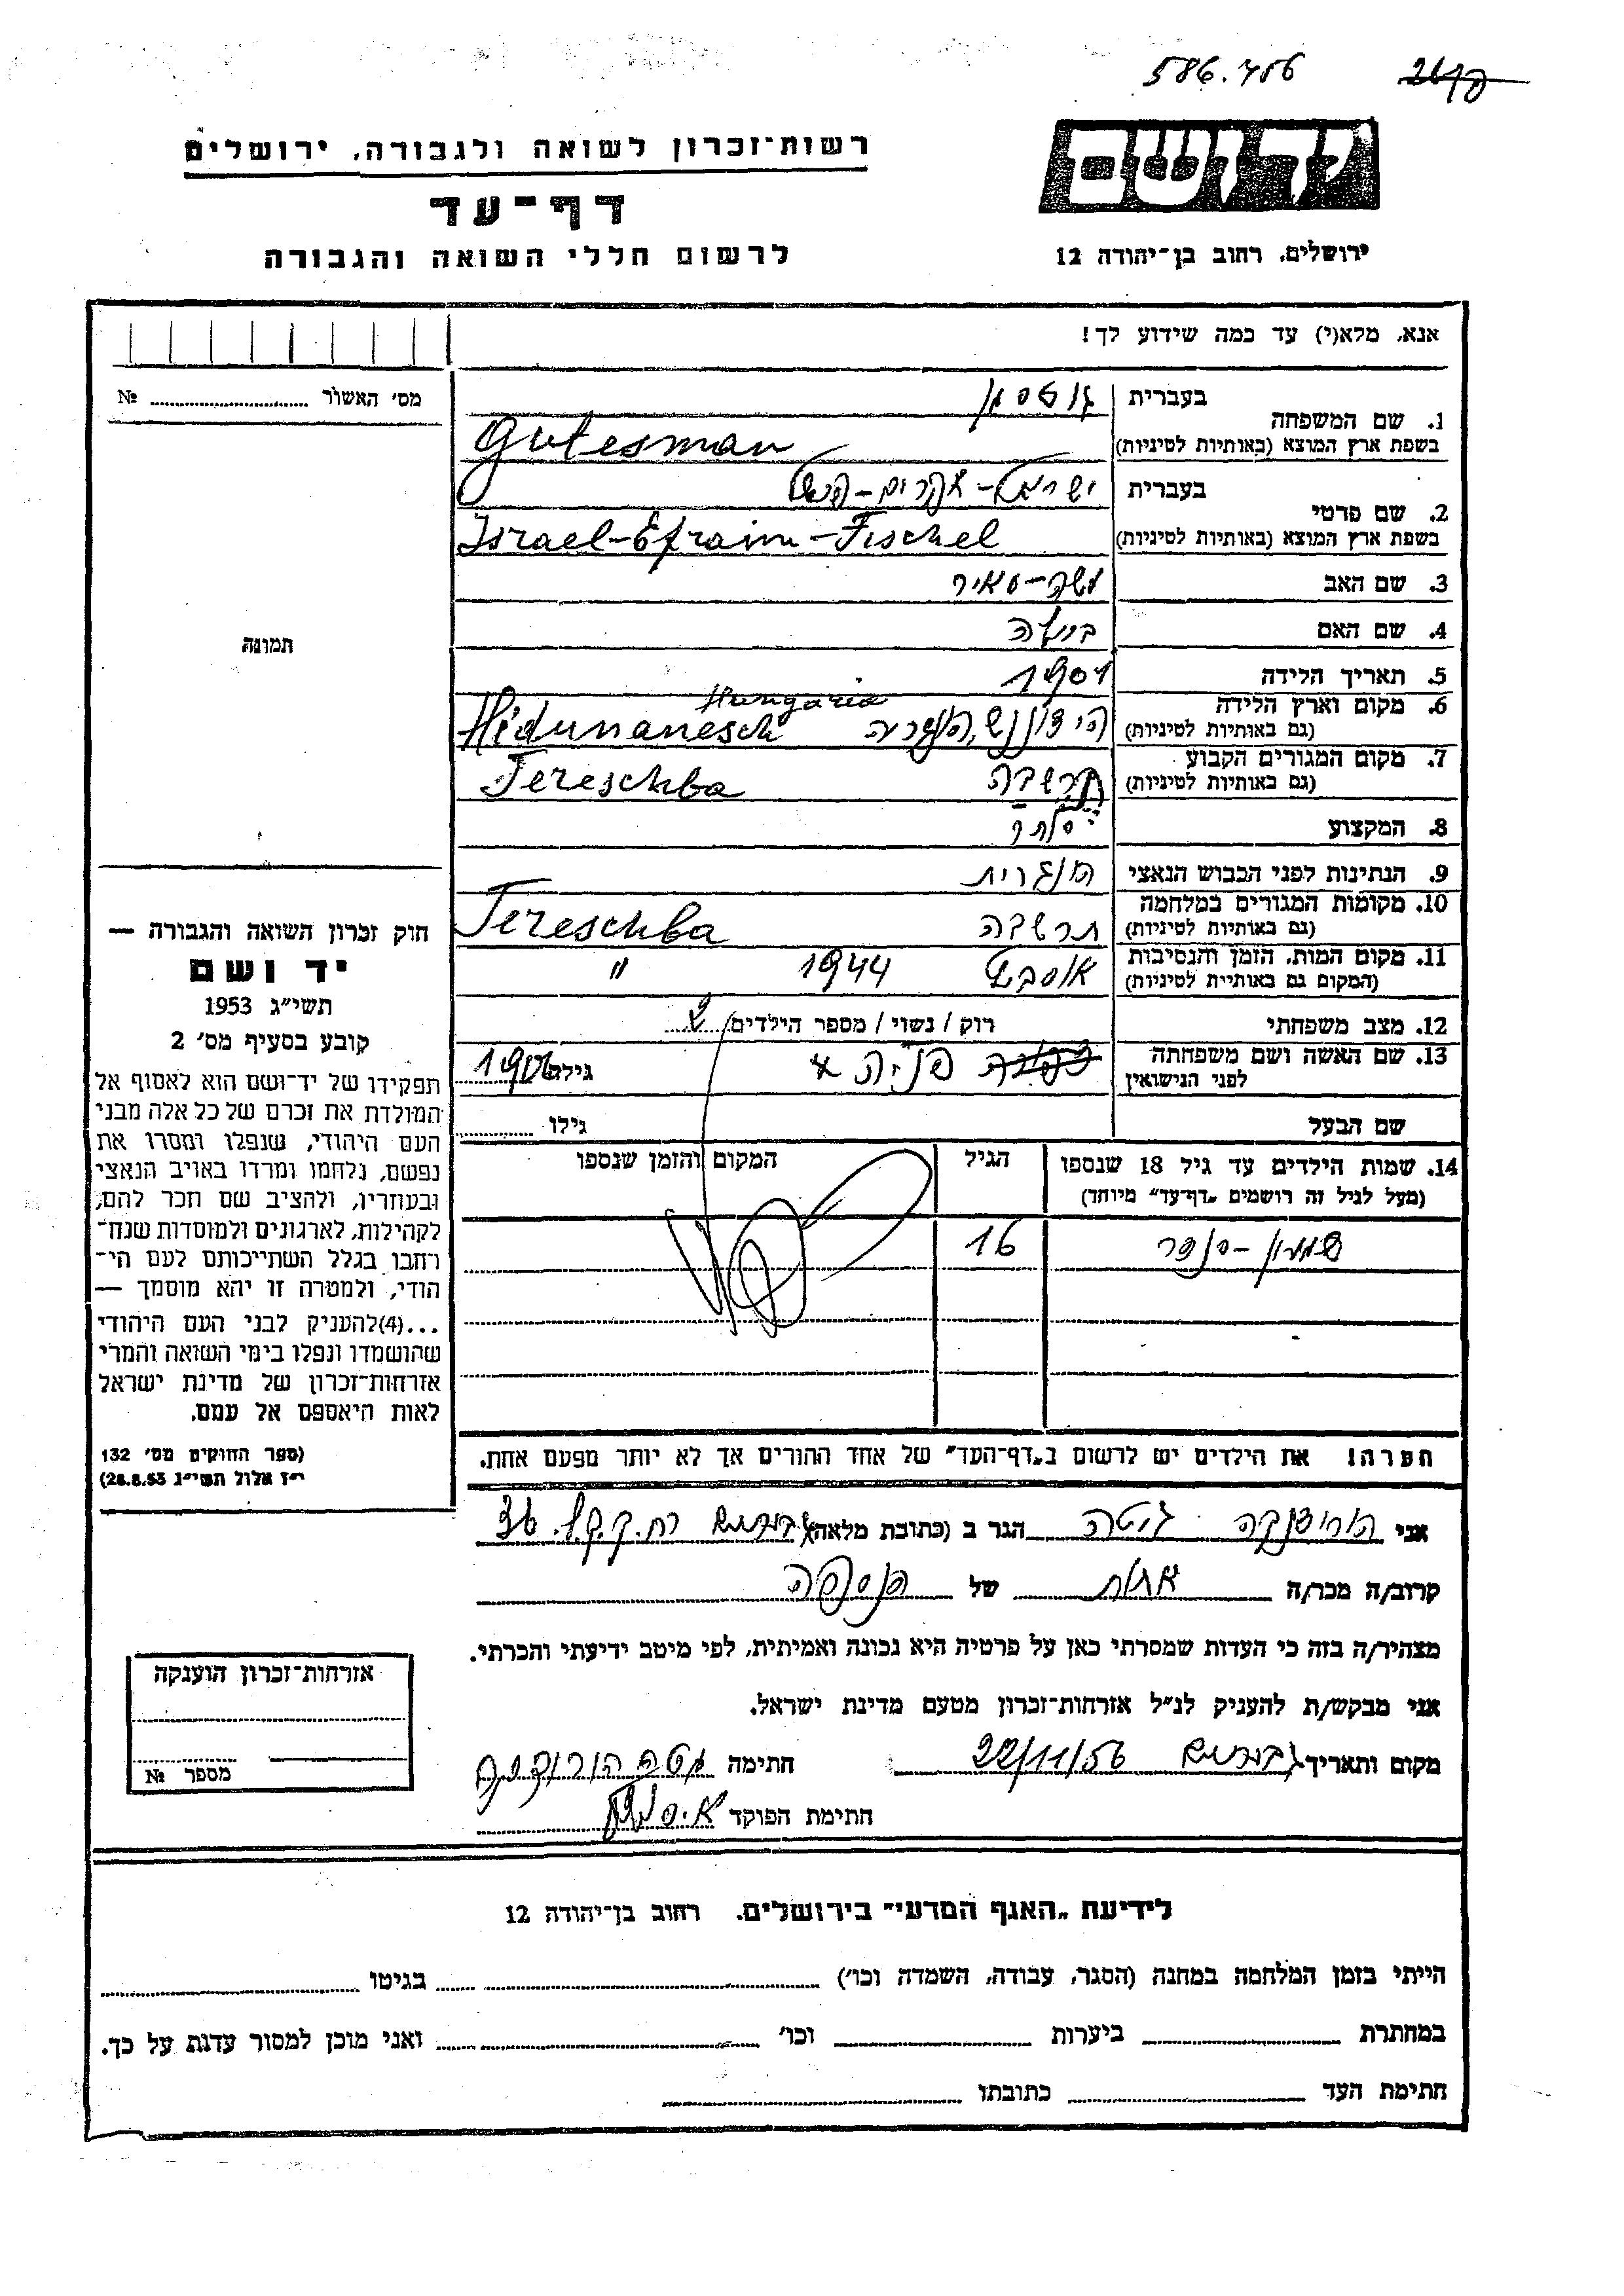 586.456
רשות־זכרון לשואה ולגבורה, ירושלים
יד ושם
דף־עד
לרשום חללי השואה והגבורה
ירושלים, רחוב בן־יהודה 12
אנא, מלא(י) עד כמה שידוע לך!
מס׳ האשור № 
1. שם המשפחה בעברית גוטסמן
בשפת ארץ המוצא (באותיות לטיניות) Gutesman
2. שם פרטי בעברית ישראל-אפרים-פישל
בשפת ארץ המוצא (באותיות לטיניות) Israel-Efraim-Fischel
3. שם האב משה-מאיר
4. שם האם
5. תאריך הלידה 1901
6. מקום וארץ הלידה Hungaria
(גם באותיות לטיניות) הידוננש, הונגריה Hédunanesch
7. מקום המגורים הקבוע
(גם באותיות לטיניות) תרשבה Tereschba
8. המקצוע סוחר
9. הנתינות לפני הכבוש הנאצי הונגרית
10. מקומות המגורים במלחמה
(גם באותיות לטיניות) תרשבה Tereschba
11. מקום המות, הזמן והנסיבות
(המקום גם באותיות לטיניות) 1944 "
12. מצב משפחתי רוק / נשוי / מספר הילדים
13. שם האשה ושם משפחתה
לפני הנישואין גילה 1906
שם הבעל גילו
14. שמות הילדים עד גיל 18 שנספו הגיל המקום והזמן שנספו
(מעל לגיל זה רושמים „דף־עד״ מיוחד)
שמעון-סופר 16
תמונה
חוק זכרון השואה והגבורה —
יד ושם
תשי״ג 1953
קובע בסעיף מס׳ 2
תפקידו של יד־ושם הוא לאסוף אל
המולדת את זכרם של כל אלה מבני
העם היהודי, שנפלו ומסרו את
נפשם, נלחמו ומרדו באויב הנאצי
ובעוזריו, ולהציב שם וזכר להם,
לקהילות, לארגונים ולמוסדות שנח־
רחבו בגלל השתייכותם לעם הי־
הודי, ולמטרה זו יהא מוסמך —
...(4)להעניק לבני העם היהודי
שהושמדו ונפלו בימי השואה והמרי
אזרחות־זכרון של מדינת ישראל
לאות היאספם אל עמם.
(ספר החוקים מס׳ 132
י״ז אלול תשי״ג 28.8.53)
הערה! את הילדים יש לרשום ב„דף־העד״ של אחד ההורים אך לא יותר מפעם אחת.
אני הגר ב (כתובת מלאה) רח. ק.ק.ל. 36
קרוב/ה מכר/ה אחות של הנספה
מצהיר/ה בזה כי העדות שמסרתי כאן על פרטיה היא נכונה ואמיתית, לפי מיטב ידיעתי והכרתי.
אני מבקש/ת להעניק לנ״ל אזרחות־זכרון מטעם מדינת ישראל.
מקום ותאריך 22/11/56 חתימה
חתימת הפוקד
אזרחות־זכרון הוענקה
מספר №
לידיעת „האגף המדעי״ בירושלים, רחוב בן־יהודה 12
הייתי בזמן המלחמה במחנה (הסגר, עבודה, השמדה וכו׳) בגיטו
במחתרת ביערות וכו׳ ואני מוכן למסור עדות על כך.
חתימת העד כתובתו